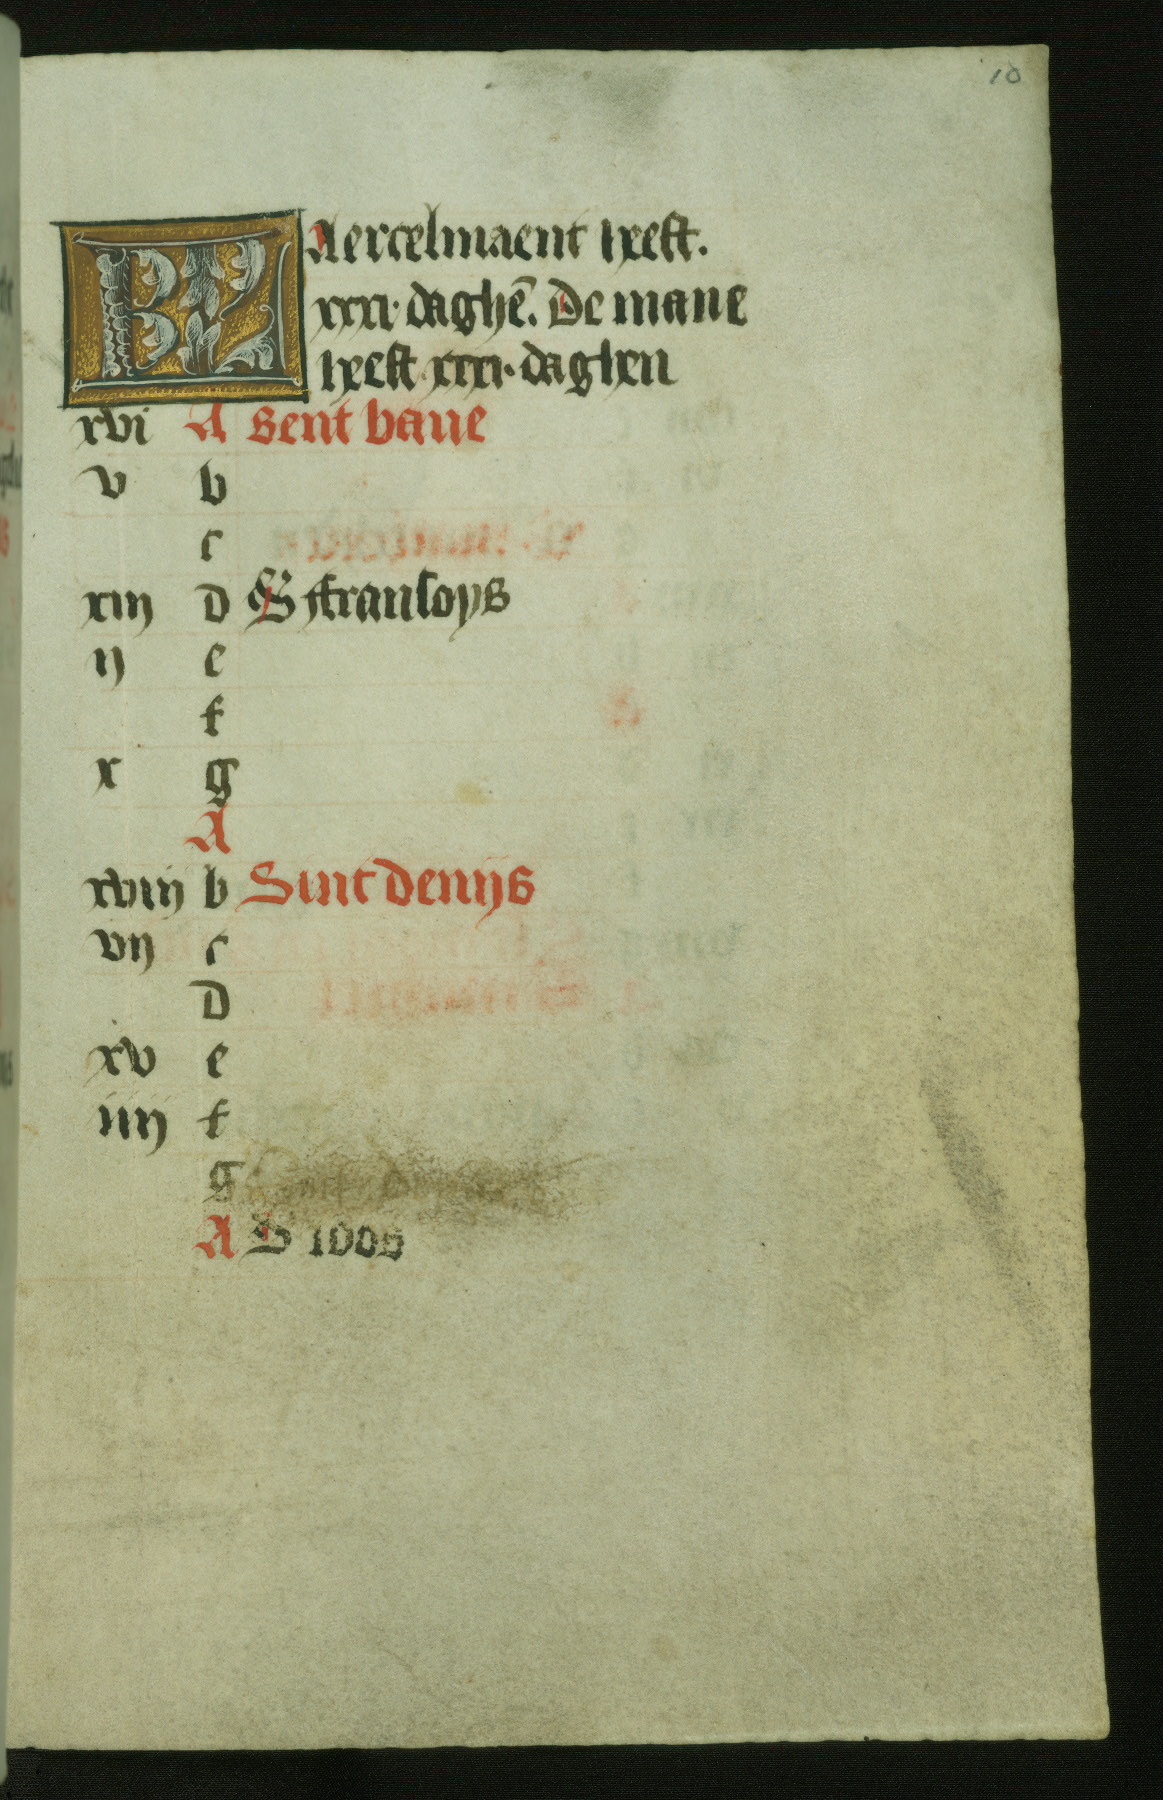 10
BZ Aercelmaent heeft.
xxxi. daghē. De mane
heeft xxxi. daghen
xvi A sent baue
v b
c
xiij d S ffransoys
ij e
f
x g
A
xviij b Sint denijs
vij c
D
xv e
iiij f
g
A S loos